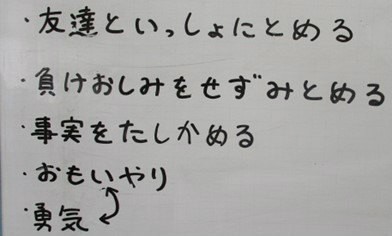 ・友達といっしょにとめる
・負けおしみをせずみとめる
・事実をたしかめる
・おもいやり
・勇気